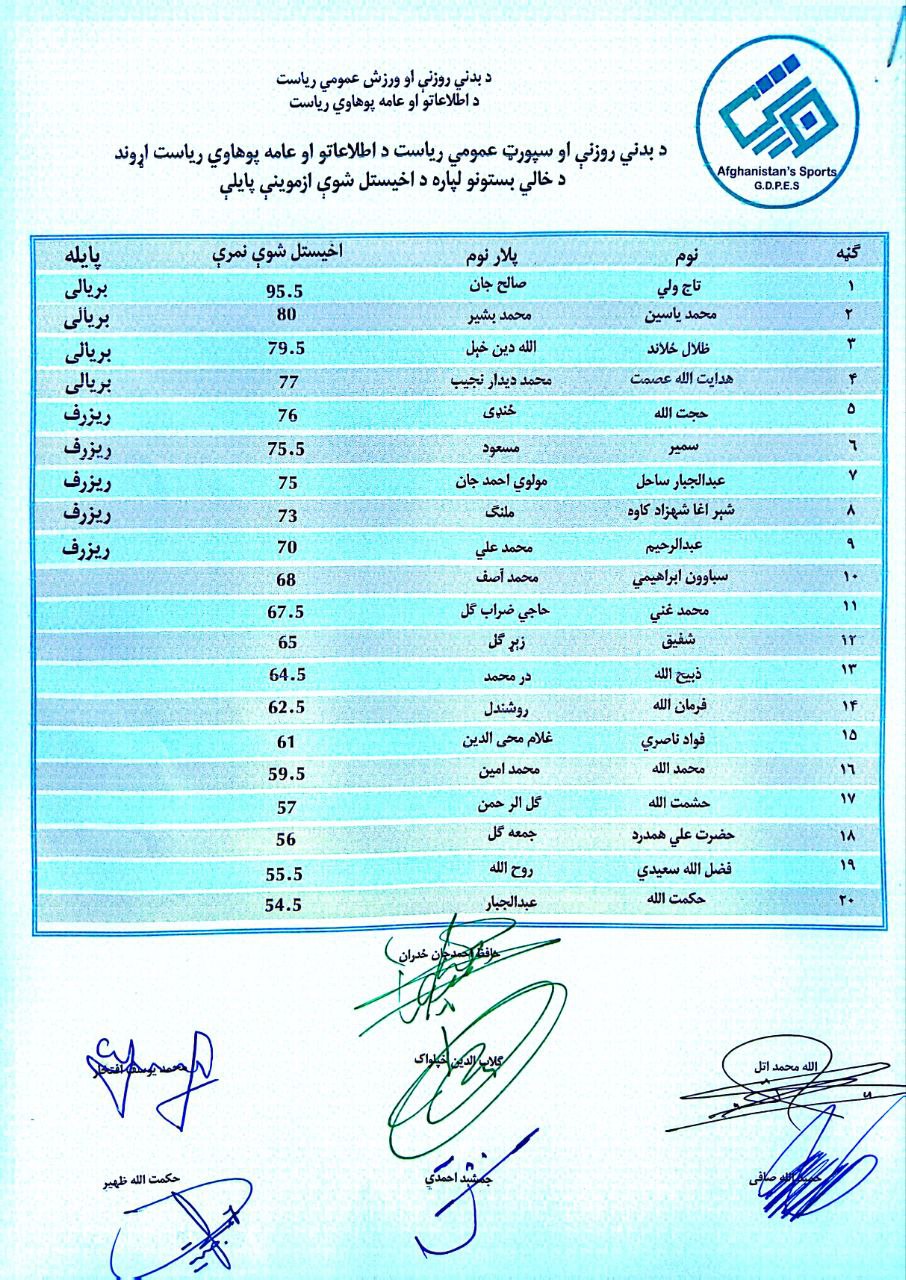 د بدني روزنې او ورزش عمومي ریاست
د اطلاعاتو او عامه پوهاوي ریاست
Afghanistan's Sports
G.D.P.E.S
د بدني روزنې او سپورټ عمومي ریاست د اطلاعاتو او عامه پوهاوي ریاست اړوند
د خالي بستونو لپاره د اخیستل شوې ازموینې پایلې
ګڼه نوم پلار نوم اخیستل شوې نمرې پایله
۱ تاج ولي صالح جان 95.5 بریالی
۲ محمد یاسین محمد بشیر 80 بریالی
۳ ظلال ځلاند الله دین خېل 79.5 بریالی
۴ هدایت الله عصمت محمد دیدار نجیب 77 بریالی
۵ حجت الله ځنډی 76 ریزرف
۶ سمیر مسعود 75.5 ریزرف
۷ عبدالجبار ساحل مولوي احمد جان 75 ریزرف
۸ شېر اغا شهزاد کاوه ملنګ 73 ریزرف
۹ عبدالرحیم محمد علي 70 ریزرف
۱۰ سباوون ابراهیمي محمد آصف 68
۱۱ محمد غني حاجي ضراب ګل 67.5
۱۲ شفیق زېړ ګل 65
۱۳ ذبیح الله در محمد 64.5
۱۴ فرمان الله روشندل 62.5
۱۵ فواد ناصري غلام محی الدین 61
۱۶ محمد الله محمد امین 59.5
۱۷ حشمت الله ګل الر حمن 57
۱۸ حضرت علي همدرد جمعه ګل 56
۱۹ فضل الله سعیدي روح الله 55.5
۲۰ حکمت الله عبدالجبار 54.5
حافظ احمدجان ځدران
الله محمد اتل ګلاب الدین خپلواک محمد یوسف افتخار
صافی جمشید احمدي حکمت الله ظهیر